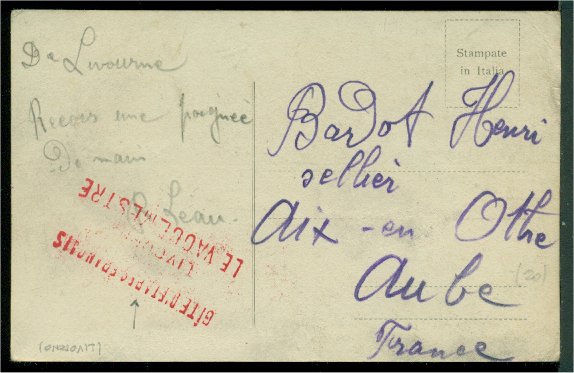 De Livourne
Recois une poignée
De main
Léau
GÎTE D'ETAPES FRANÇAIS
LIVOURNE
LE VAGUEMESTRE
(LIVORNO)
Stampate
in Italia
Bardot Henri
sellier
Aix-en Othe
Aube
France